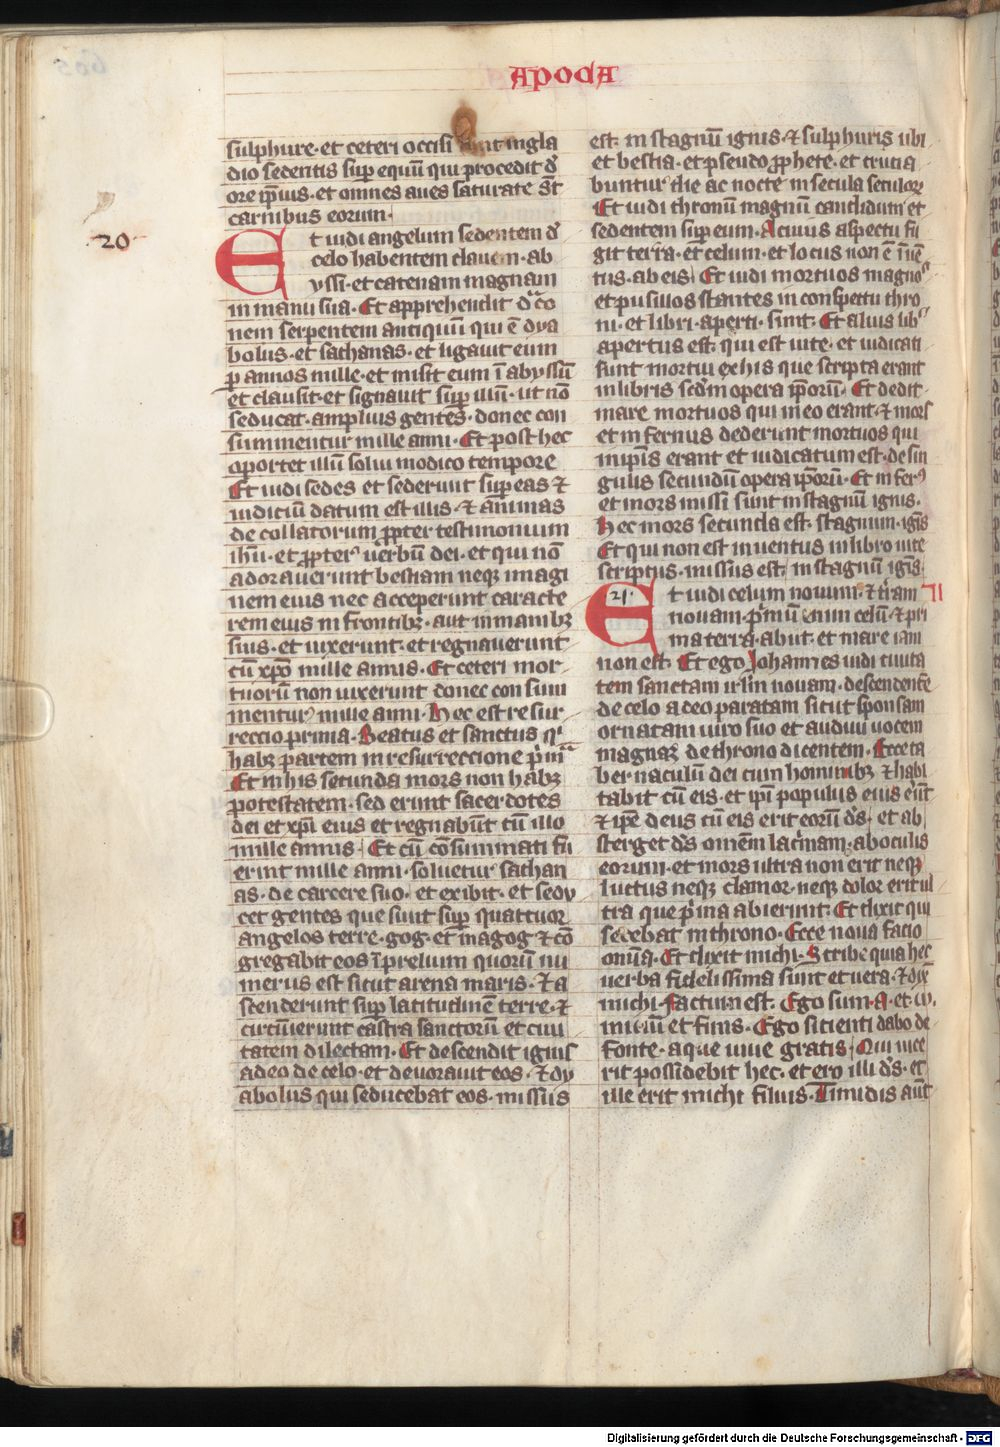 APOCA
sulphure · et ceteri occisi sunt in gla
dio sedentis sup̄ equū qui procedit d̄
ore ip̄ius · et omnes aues saturate s̄t
carnibus eorum ·
20
Et uidi angelum sedentem d̄
celo habentem clauem · ab
yssi · et catenam magnam
in manu sua · Et apprehendit dͣco
nem serpentem antiquū qui ē dya
bolus · et sathanas · et ligauit eum
ꝑ annos mille · et misit eum ī abyssū
et clausit · et signauit sup̄ illū · ut nō
seducat · amplius gentes · donec con
summentur mille anni · Et post hec
oportet illū solui modico tempore
Et uidi sedes et sederunt sup̄ eas ⁊
iudiciū datum est illis · ⁊ animas
decollatorum ꝓpter testimonium
ihū · et ꝓpter uerbū dei · et qui nō
adorauerunt bestiam neqꝫ imagi
nem eius nec acceperunt caracte
rem eius in frontibꝫ · aut in manibꝫ
suis · et uixerunt · et regnauerunt
cū xp̄o mille annis · Et ceteri mor
tuorū non uixerunt donec consum
mentur mille anni · Hec est resur
reccio prima · Beatus et sanctus qͥ
habꝫ partem in resurreccione pͥmͣ
Et in his secunda mors non habꝫ
potestatem · sed erunt sacerdotes
dei et xp̄i eius et regnabūt cū illo
mille annis · Et cū cōsummati fu
erint mille anni · soluetur sathan
as · de carcere suo · et exibit · et sedu
cet gentes que sunt sup̄ quattuor
angelos terre · gog · et magog ⁊ cō
gregabit eos ī prelium quorū nu
merus est sicut arena maris · ⁊ a
scenderunt sup̄ latitudinē terre · ⁊
circūierunt castra sanctorū et ciui
tatem dilectam · Et descendit ignis
a deo de celo · et deuorauit eos · ⁊ dy
abolus qui seducebat eos · missus
est · in stagnū ignis · ⁊ sulphuris ubi
et bestia · et pseudo ꝓphete · et crucia
buntur die ac nocte in secula seculoꝝ
Et uidi thronū magnū candidum et
sedentem sup̄ eum · A cuius aspectu fu
git terra · et celum · et locus non ē īuē
tus · ab eis · Et uidi mortuos magnos
et pusillos stantes in conspectu thro
ni · et libri · aperti · sunt · Et alius lib͛
apertus est · qui est uite · et iudicati
sunt mortui ex his que scripta erant
in libris scd̄m opera ip̄orū · Et dedit
mare mortuos qui in eo erant · ⁊ mors
et infernus dederunt mortuos qui
in ip̄is erant et iudicatum est · de sin
gulis secundū opera ip̄orū · Et infer⁹
et mors missi sunt in stagnū ignis ·
Hec mors secunda est · stagnum · ig̅is
Et qui non est inuentus in libro uite
scriptus · missus est · in stagnū ig̅is
21
Et uidi celum nouum · ⁊ t̄ram
nouam · pͥmū enim celū · ⁊ pri
ma terra · abiit · et mare iam
non est · Et ego Johannes uidi ciuita
tem sanctam irl̄m nouam · descendentē
de celo a deo paratam sicut sponsam
ornatam uiro suo et audiui uocem
magnaꝫ de throno dicentem · Ecce ta
bernaculū dei cum hominibꝫ ⁊ habi
tabit cū eis · et ip̄i populus eius er̄ūt
⁊ ip̄e deus cū eis erit eorū d̄s · et ab
sterget d̄s omēm lac̄mam · ab oculis
eorum · et mors ultra non erit neqꝫ
luctus neqꝫ clamor · neqꝫ dolor erit ul
tra que pͥma abierunt · Et dixit qui
sedebat in throno · Ecce noua facio
omīa · Et dixit michi · Scribe quia hec
uerba fidelissima sunt et uera · ⁊ dix̄
michi · Factum est · Ego sum · A · et ω ·
iniciū et finis · Ego sitienti dabo de
fonte · aque uiue gratis · Qui uice
rit possidebit hec · et ero illi d̄s · et
ille erit michi filius · Timidis aūt
Digitalisierung gefördert durch die Deutsche Forschungsgemeinschaft - DFG